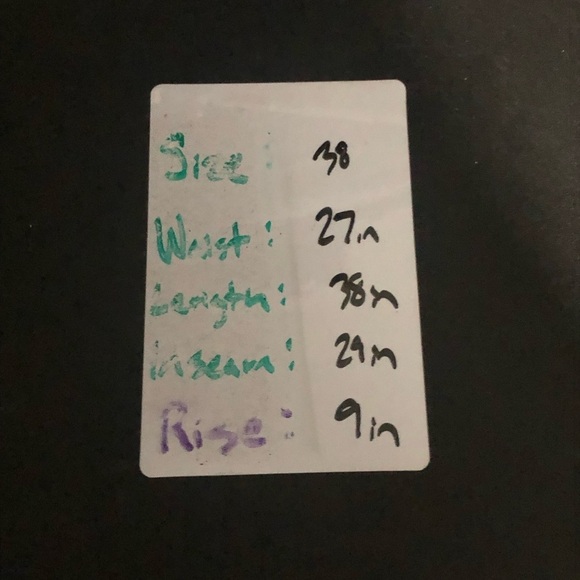 Size: 38
Waist: 27in
Length: 38in
Inseam: 29in
Rise: 9in